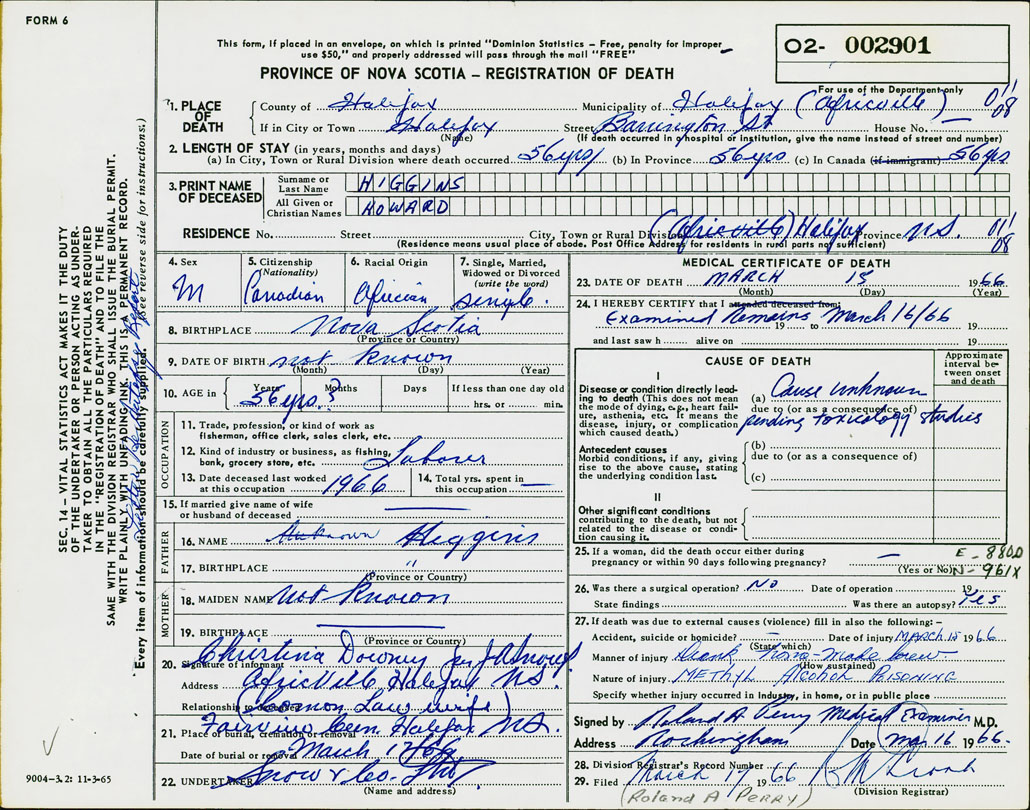 FORM 6
This form, if placed in an envelope, on which is printed "Dominion Statistics – Free, penalty for improper
use $50," and properly addressed will pass through the mail "FREE"
O2- 002901
For use of the Department only
PROVINCE OF NOVA SCOTIA – REGISTRATION OF DEATH
1. PLACE OF DEATH
County of Halifax Municipality of Halifax (Africville) 01/08
If in City or Town Halifax Street Barrington St House No. —
(Name) (If death occurred in a hospital or institution, give the name instead of street and number)
2. LENGTH OF STAY (in years, months and days)
(a) In City, Town or Rural Division where death occurred 56 yrs (b) In Province 56 yrs (c) In Canada (if immigrant) 56 yrs
3. PRINT NAME OF DECEASED
Surname or Last Name HIGGINS
All Given or Christian Names HOWARD
RESIDENCE No. Street City, Town or Rural Division (Africville) Halifax Province N.S. 01/08
(Residence means usual place of abode. Post Office Address for residents in rural parts not sufficient)
4. Sex M
5. Citizenship (Nationality) Canadian
6. Racial Origin African
7. Single, Married, Widowed or Divorced (write the word) single.
8. BIRTHPLACE Nova Scotia
(Province or Country)
9. DATE OF BIRTH not known
(Month) (Day) (Year)
10. AGE in Years Months Days If less than one day old
56 yrs. ? hrs. or min.
OCCUPATION
11. Trade, profession, or kind of work as
fisherman, office clerk, sales clerk, etc.
12. Kind of industry or business, as fishing,
bank, grocery store, etc. Laborer
13. Date deceased last worked
at this occupation 1966
14. Total yrs. spent in
this occupation —
15. If married give name of wife
or husband of deceased —
FATHER
16. NAME Unknown Higgins
17. BIRTHPLACE "
(Province or Country)
MOTHER
18. MAIDEN NAME not known
19. BIRTHPLACE —
(Province or Country)
20. Signature of informant Christina Downey per J A Snow
Address Africville Halifax N.S.
Relationship to deceased (Common Law wife)
21. Place of burial, cremation or removal Fairview Cem. Halifax N.S.
Date of burial or removal March 17/66
22. UNDERTAKER Snow & Co. Ltd
(Name and address)
MEDICAL CERTIFICATE OF DEATH
23. DATE OF DEATH MARCH 15 1966
(Month) (Day) (Year)
24. I HEREBY CERTIFY that I attended deceased from:
Examined Remains March 16/66
19 to 19
and last saw h alive on 19
CAUSE OF DEATH
Approximate interval between onset and death
I
Disease or condition directly leading to death (This does not mean the mode of dying, e.g., heart failure, asthenia, etc. It means the disease, injury, or complication which caused death.)
(a) Cause unknown
due to (or as a consequence of)
pending toxicology studies
Antecedent causes
Morbid conditions, if any, giving rise to the above cause, stating the underlying condition last.
(b)
due to (or as a consequence of)
(c)
II
Other significant conditions
contributing to the death, but not related to the disease or condition causing it.
25. If a woman, did the death occur either during
pregnancy or within 90 days following pregnancy? —
(Yes or No)
E - 880D
N - 961X
26. Was there a surgical operation? No Date of operation 19
State findings Was there an autopsy? Yes
27. If death was due to external causes (violence) fill in also the following:–
Accident, suicide or homicide? — Date of injury MARCH 15 1966
(State which)
Manner of injury Drank Home-Made brew.
(How sustained)
Nature of injury METHYL ALCOHOL POISONING
Specify whether injury occurred in Industry, in home, or in public place
Signed by Roland A Perry Medical Examiner M.D.
Address Rockingham Date Mar 16 1966.
28. Division Registrar's Record Number
29. Filed March 17 1966
(Division Registrar)
(Roland A PERRY)
SEC. 14 – VITAL STATISTICS ACT MAKES IT THE DUTY
OF THE UNDERTAKER OR PERSON ACTING AS UNDER-
TAKER TO OBTAIN ALL THE PARTICULARS REQUIRED
IN THE "REGISTRATION OF DEATH" AND TO FILE THE
SAME WITH THE DIVISION REGISTRAR WHO SHALL ISSUE THE BURIAL PERMIT.
WRITE PLAINLY, WITH UNFADING INK. THIS IS A PERMANENT RECORD.
Every item of information should be carefully supplied. (See reverse side for instructions.)
9004-3.2: 11-3-65